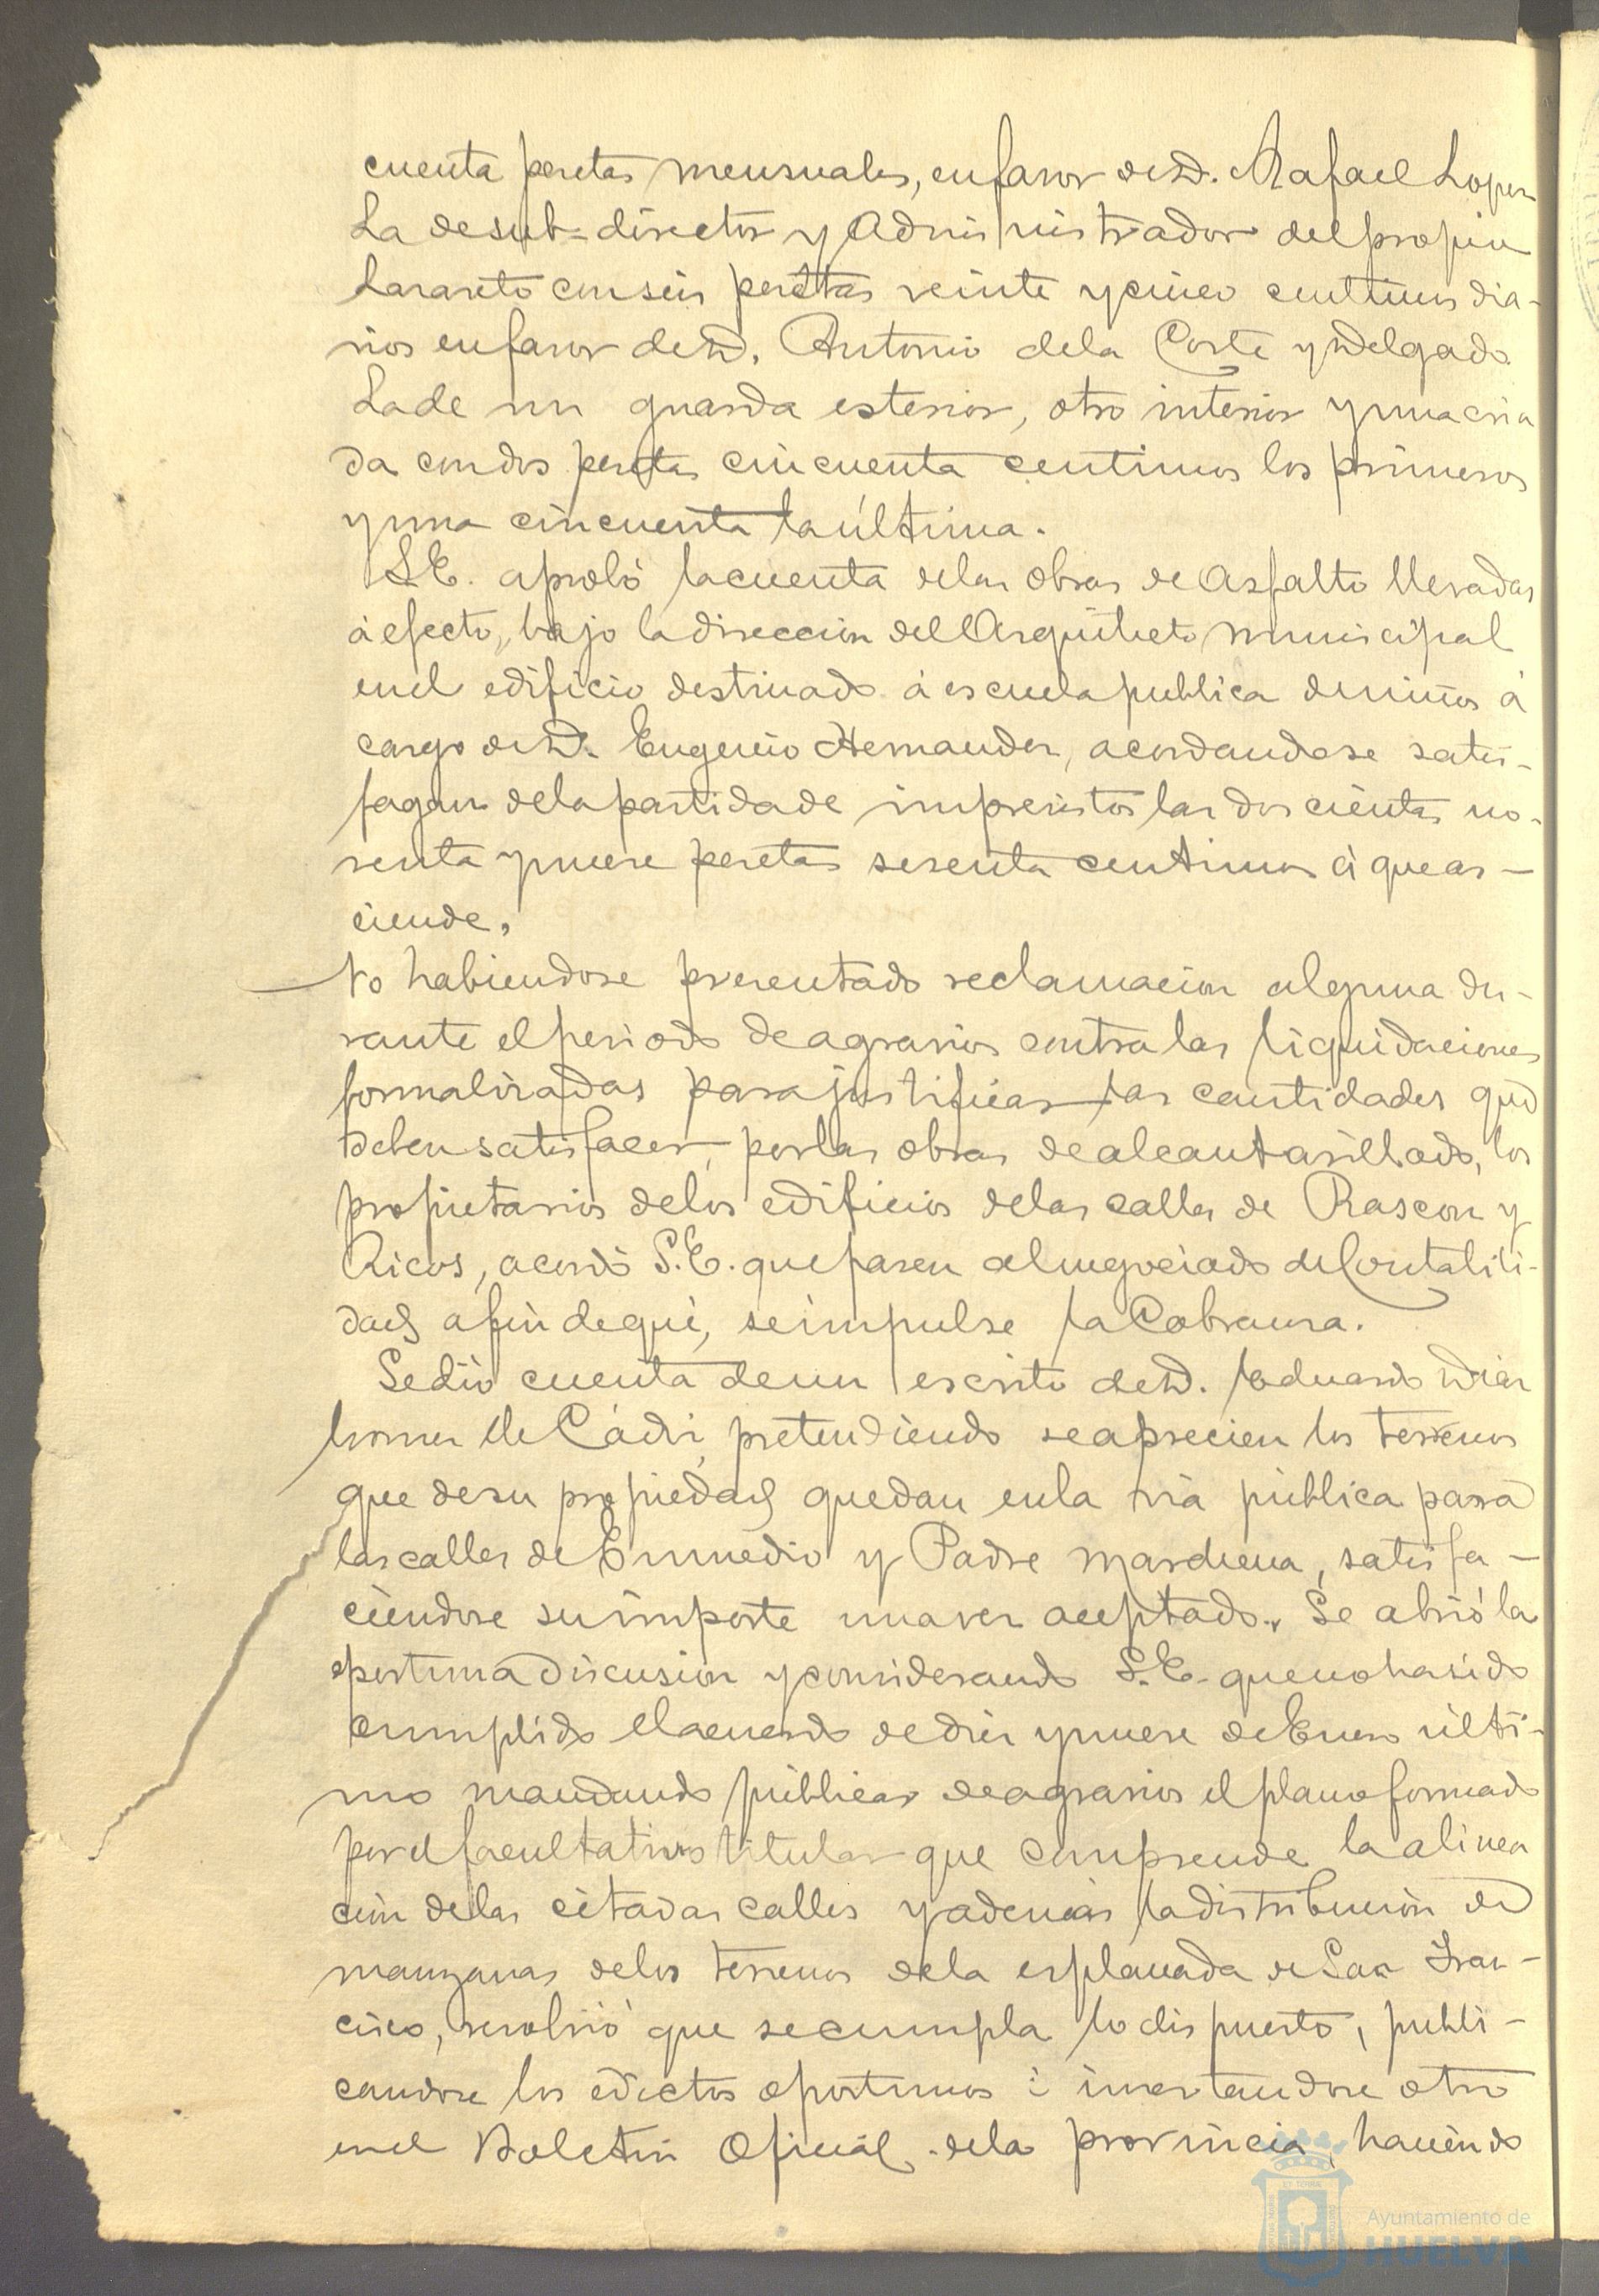 cuenta pesetas mensuales, en favor de D. Rafael Lopez
La de sub-director y Administrador del propio
Lazareto con seis pesetas veinte y cinco centimos dia-
rios en favor de D. Antonio de la Corte y Delgado
La de un guarda esterior, otro interior y una cria
da con dos pesetas cincuenta centimos los primeros
y una cincuenta la última.
S.E. aprobó la cuenta de las obras de Asfalto llevadas
á efecto, bajo la direccion del Arquitecto municipal
en el edificio destinado á escuela publica de niños á
cargo de D. Eugenio Hernandez, acordandose satis-
fagan de la partida de imprevistos las doscientas no-
venta y nueve pesetas sesenta centimos á que as-
ciende.
No habiendose presentado reclamacion alguna du-
rante el periodo de agravios contra las liquidaciones
formalizadas para justificar las cantidades que
deben satisfacer, por las obras de alcantarillado, los
propietarios de los edificios de las calles de Rascon y
Ricos, acordó S.E. que pasen al negociado de Contabili-
dad a fin de que, se impulse la Cobranza.
Se dió cuenta de un escrito de D. Eduardo Diaz
de Cádiz, pretendiendo se aprecien los terrenos
que de su propiedad quedan en la via pública para
las calles de Enmedio y Padre Marchena, satisfa-
ciendose su importe una vez aceptado. Se abrió la
oportuna discusion y considerando S.E. que no ha sido
cumplido el acuerdo de diez y nueve de Enero últi-
mo mandando públicar de agravios el plano formado
por el facultativo titular que comprende la alinea
cion de las citadas calles y además la distribucion de
manzanas de los terrenos de la esplanada de San Fran-
cisco, resolvió que se cumpla lo dispuesto, publi-
candose los edictos oportunos é insertandose otro
en el Boletin Oficial de la provincia, haciendo
Ayuntamiento de
HUELVA